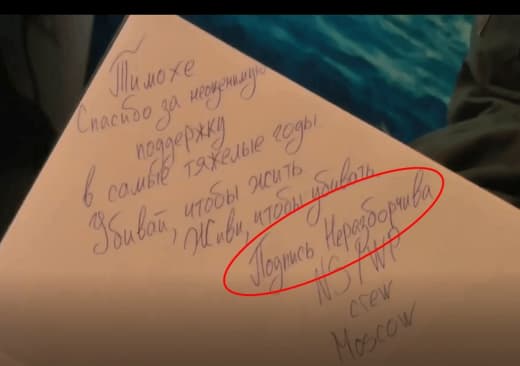 Тимохе
Спасибо за неоценимую
поддержку
в самые тяжелые годы
Убивай, чтобы жить
Живи, чтобы убивать
Подпись Неразборчива
NS/WP
crew
Moscow